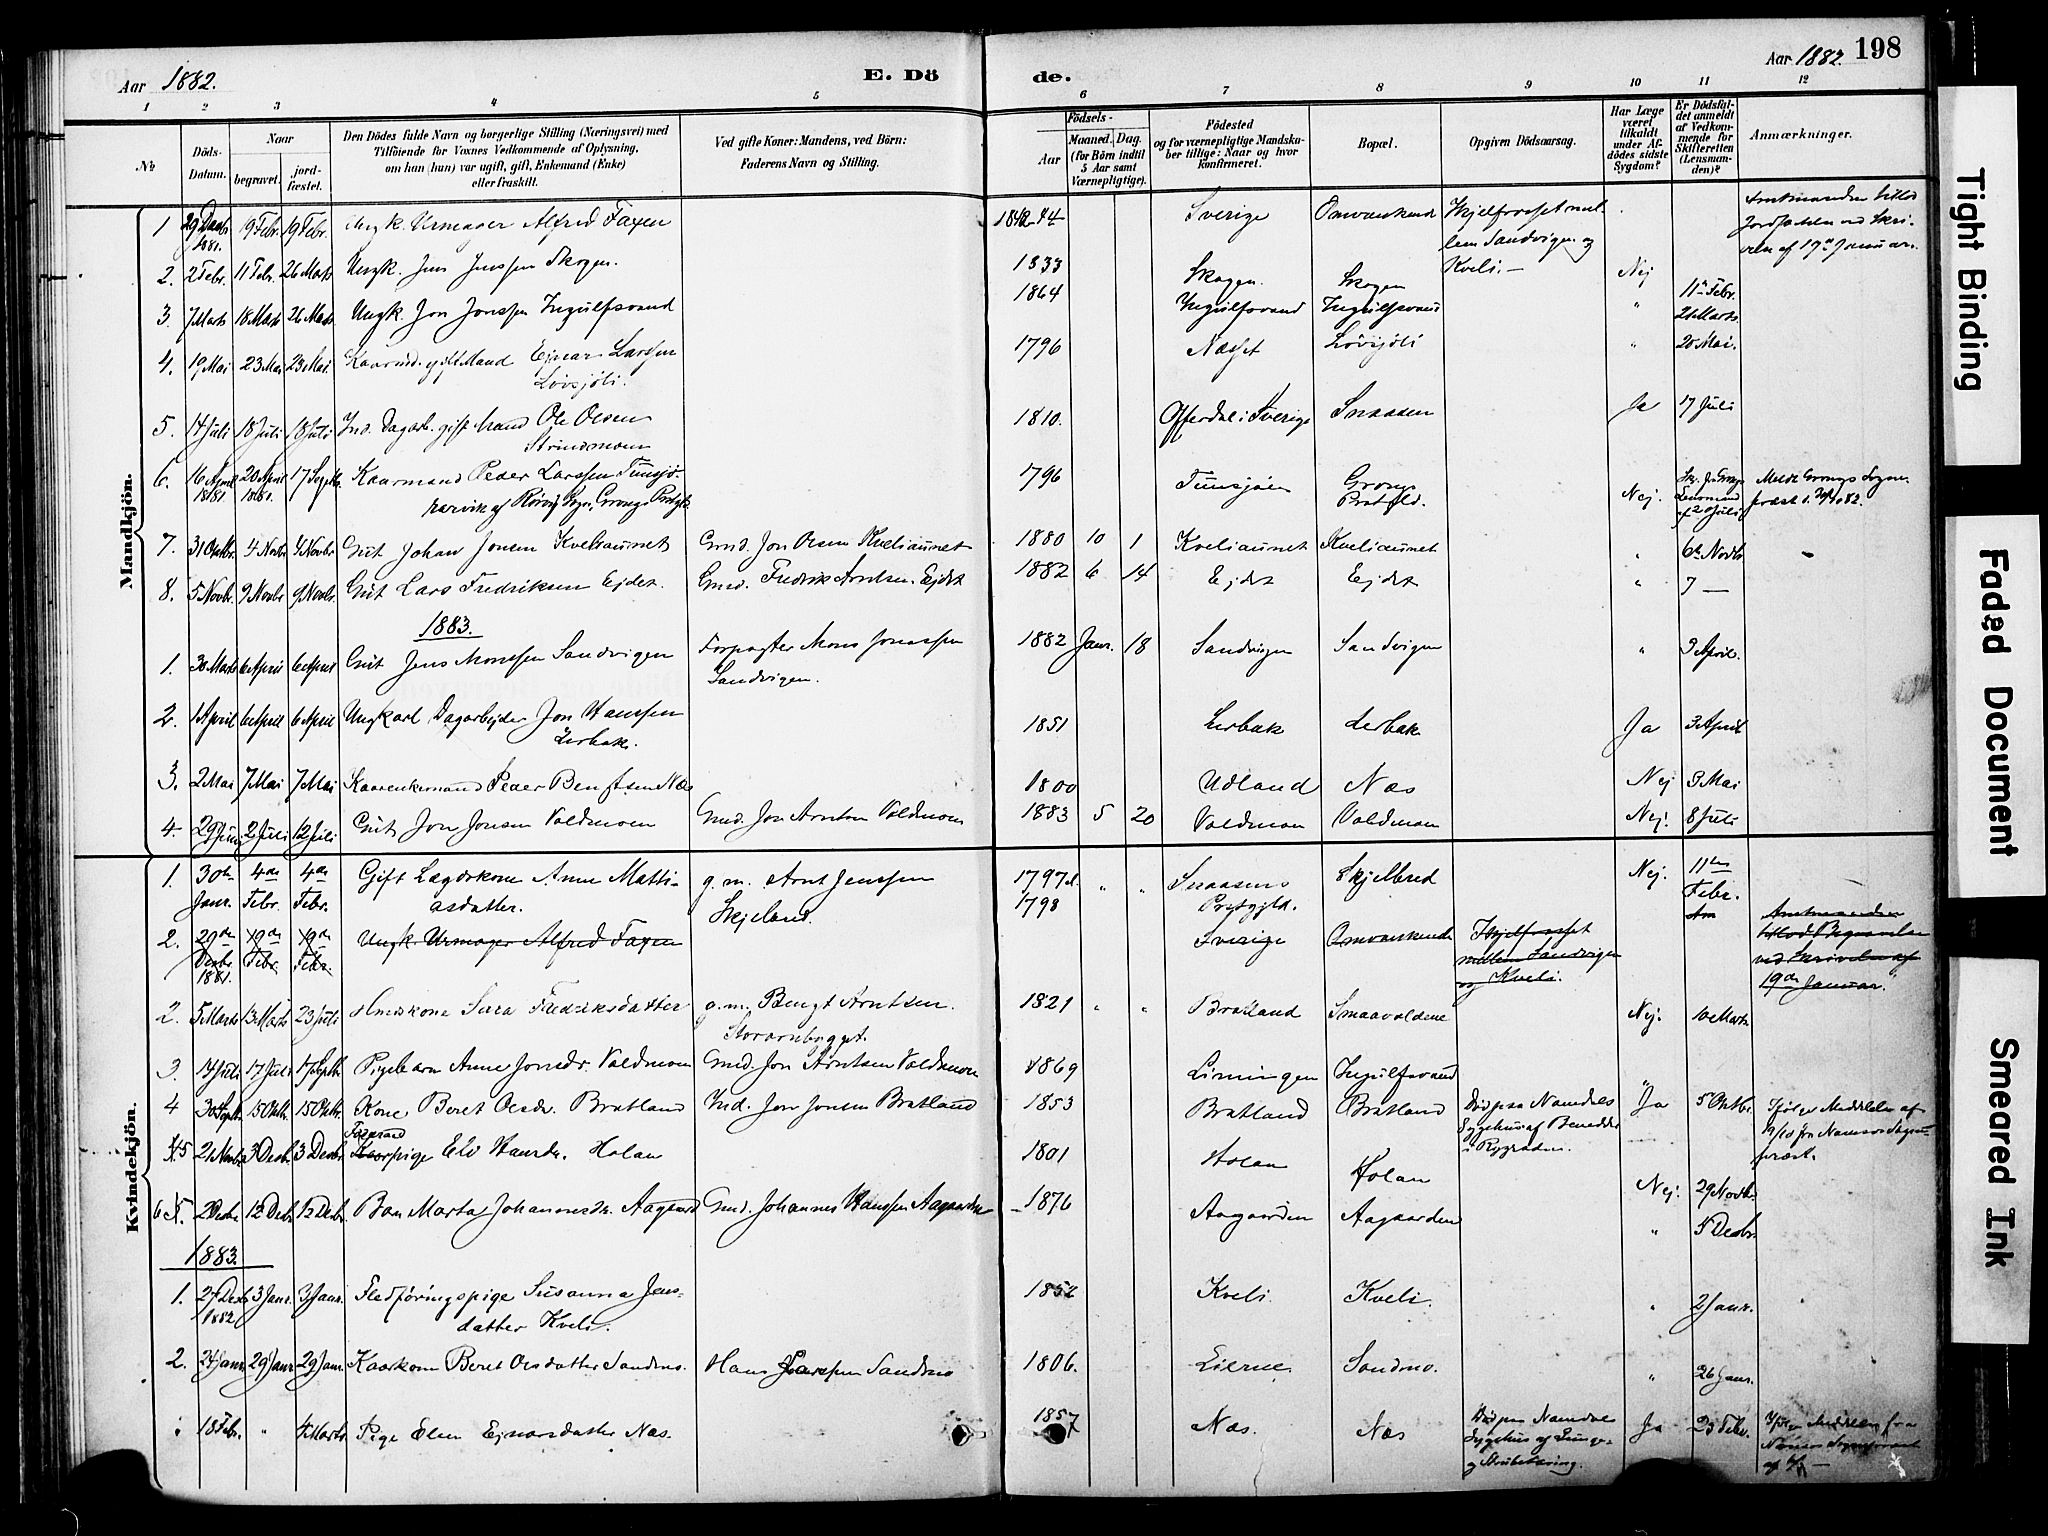 Aar 1882.
E. Dö
de.
Aar 1882. 198
1 2 3 4 5 6 7 8 9 10 11 12
No
Döds-Datum.
Naar
begravet.
jord-fæstet.
Den Dödes fulde Navn og borgerlige Stilling (Næringsvei) med
Tilföiende for Voxnes Vedkommende af Oplysning,
om han (hun) var ugift, gift, Enkemand (Enke)
eller fraskilt.
Ved gifte Koner: Mandens, ved Börn:
Faderens Navn og Stilling.
Födsels-
Aar
Maaned. Dag.
(for Börn indtil
5 Aar samt
Værnepligtige).
Födested
og for værnepligtige Mandska-
ber tillige: Naar og hvor
konfirmeret.
Bopæl.
Opgiven Dödsaarsag.
Har Læge
været
tilkaldt
under Af-
dödes sidste
Sygdom?
Er Dödsfal-
det anmeldt
af Vedkom-
mende for
Skifteretten
(Lensman-
den)?
Anmærkninger.
Mandkjön.
1 29 Decbr 1881. 19 Febr. 19 Febr. Ungk. Urmager Alfred Faxen Sverige Omvankend Ihjelfrosset mel-
lem Sandvigen og
Kveli.— Amtmanden tillod
Jordfæstelsen ved Skri-
velse af 19de Januar.
2. 2 Febr. 11 Febr. 26 Marts Ungk. Jens Jenssen Skogen. 1833 Skogen. Skogen Nej 11te Febr.
3. 7 Marts 18 Marts 26 Marts Ungk. Jon Jonssen Ingulfsvand 1864 Ingulfsvand Ingulfsvand " 21 Marts.
4. 19 Mai 23 Mai 23 Mai. Kaarmd. gift Mand Ejnar Larssen
Lövsjöli. 1796 Næsset Lövsjöli " 20 Mai.
5. 14 Juli 18 Juli 18 Juli Ind. Dagarb. gift Mand Ole Olsen
Strindmoen 1810. Offerdal i Sverige Snaasen Ja 17 Juli
6. 16 April 1881 20 April 1881. 17 Septbr. Kaarmand Peder Larssen Tunsjö-
rarvik af Rörvig Sogn, Grongs Prstgjld. 1796 Tunsjöen Grongs
Prstgjld. Nej.
7. 31 Oktbr. 4 Novbr 4 Novbr Gut Johan Jonsen Kveliaunet Gmd. Jon Olsen Kveliaunet 1880 10 1 Kveliaunet Kveliaunet " 6te Novbr
8. 5 Novbr. 9 Novbr 9 Novbr. Gut Lars Fredriksen Ejdet. Gmd. Fredrik Arntsen Ejdet 1882 6 14 Ejdet Ejdet " 7 —
1883.
1. 30 Marts 6 April 6 April Gut Jens Monssen Sandvigen Forpagter Mons Jonassen
Sandvigen. 1882 Janr. 18 Sandvigen Sandvigen " 3 April.
2. 1 April 6 April 6 April Ungkarl Dagarbejder Jon Hanssen
Lerbak. 1851 Lerbak Lerbak Ja 3 April
3. 2 Mai 7 Mai 7 Mai Kaarenkemand Peder Bengtsen Næs 1800 Udland Næs Nej 3 Mai
4. 29 Juni 2 Juli 12 Juli Gut Jon Jonsen Valdmoen Gmd. Jon Arntsen Valdmoen 1883 5 20 Valdmoen Valdmoen Nej. 8 Juli
Kvindekjön.
1. 30te Janr. 4de Febr. 4de Febr. Gift Lægdskone Anne Matti-
asdatter. g.m. Arnt Jenssen
Skjelbred. 1797 el.
1798 " " Snaasens
Prstgjld. Skjelbred Nej. 11te
Febr.
2. 29de Decbr. 1881. 19de Febr. 19de Febr. Ungk. Urmager Alfred Faxen Sverige Omvankende Ihjelfrosset
mellem Sandvigen
og Kveli. Amtmanden
tillod Begravelse
ved Skrivelse af
19de Januar.
2. 5 Marts 13 Marts 23 Juli Huskone Sara Fredriksdatter g.m. Bengt Arntsen. 1821 " " Bratland Smaavoldene Nej. 10 Marts
3. 14 Juli 17 Juli 17 Septbr. Pigebarn Anne Jonsdr. Valdmoen Gmd. Jon Arntsen Valdmoen 1869 Limingen Ingulfsvand "
4 30 Septbr. 15 Oktbr. 15 Oktbr. Kone Beret Olsdr. Bratland Ind. Jon Jonsen Bratland 1853 Bratland Bratland Död paa Namdals
Sygehus af Benedder
i Rygraden. Ja 5 Oktbr. Ifölge Meddelelse af
9/10 fra Namsos Sogne-
præst.
5 21 Novbr. 3 Decbr. 3 Decbr. pige Eli Hansdr. Holan 1801 Holan Holan Nej. 29 Novbr.
6 2 Decbr 12 Decbr 12 Decbr. Barn Marta Johannesdr. Aagaard Gmd. Johannes Hanssen Aagaarden 1876 Aagaarden Aagaarden " 5 Decbr.
1883.
1. 27 Decbr 1882 3 Janr. 3 Janr. Fledföringspige Susanna Jens-
datter Kveli. 1852 Kveli. Kveli. " 2 Janr.
2. 24 Janr. 29 Janr. 29 Janr. Kaarkone Beret Olsdatter Sandmo. Hans Larssen Sandmo 1806. Lierne. Sandmo. " 26 Janr.
18 Febr. " 4 Marts Pige Elen Ejnarsdatter Næs. 1857 Næs. Næs Död paa Namdals
Sygehus af Lunge-
og Strubetæring. Ja 23 Febr. Ifölge Meddelelse fra
Namsos Sognepræst
Tight Binding
Faded Document
Smeared Ink